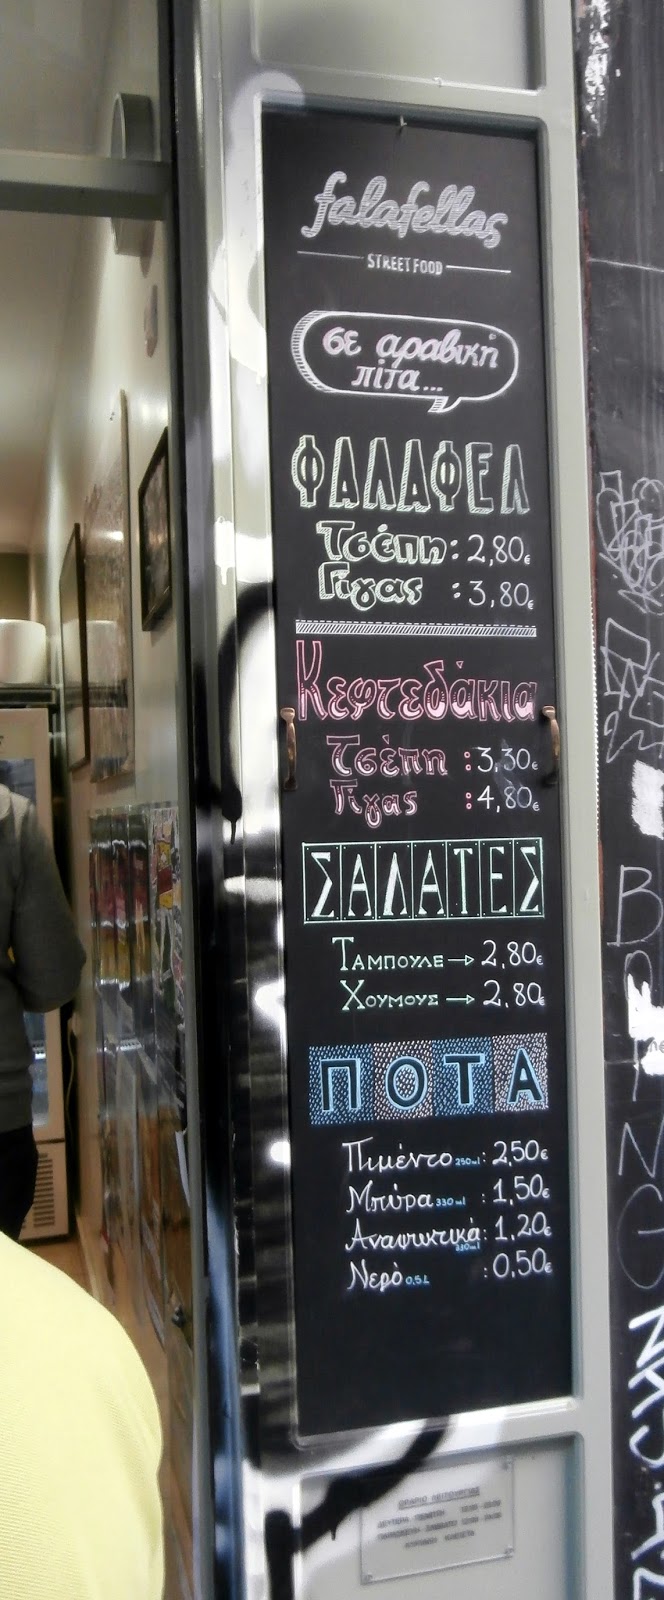 falafellas
STREET FOOD
σε αραβική
πίτα...
ΦΑΛΑΦΕΛ
Τσέπη: 2,80€
Γίγας : 3,80€
Κεφτεδάκια
Τσέπη : 3,30€
Γίγας : 4,80€
ΣΑΛΑΤΕΣ
ΤΑΜΠΟΥΛΕ → 2,80€
ΧΟΥΜΟΥΣ → 2,80€
ΠΟΤΑ
Πιμέντο 250ml : 2,50€
Μπύρα 330ml : 1,50€
Αναψυκτικά 330ml : 1,20€
Νερό 0,5L : 0,50€
ΩΡΑΡΙΟ ΛΕΙΤΟΥΡΓΙΑΣ
ΔΕΥΤΕΡΑ - ΠΕΜΠΤΗ
ΠΑΡΑΣΚΕΥΗ - ΣΑΒΒΑΤΟ
ΚΥΡΙΑΚΗ ΚΛΕΙΣΤΑ